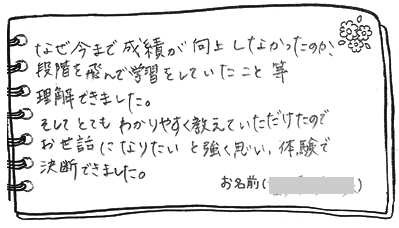 なぜ今まで成績が向上しなかったのか、
段階を飛んで学習をしていたこと等
理解できました。
そしてとてもわかりやすく教えていただけたので
お世話になりたいと強く思い、体験で
決断できました。
お名前( )